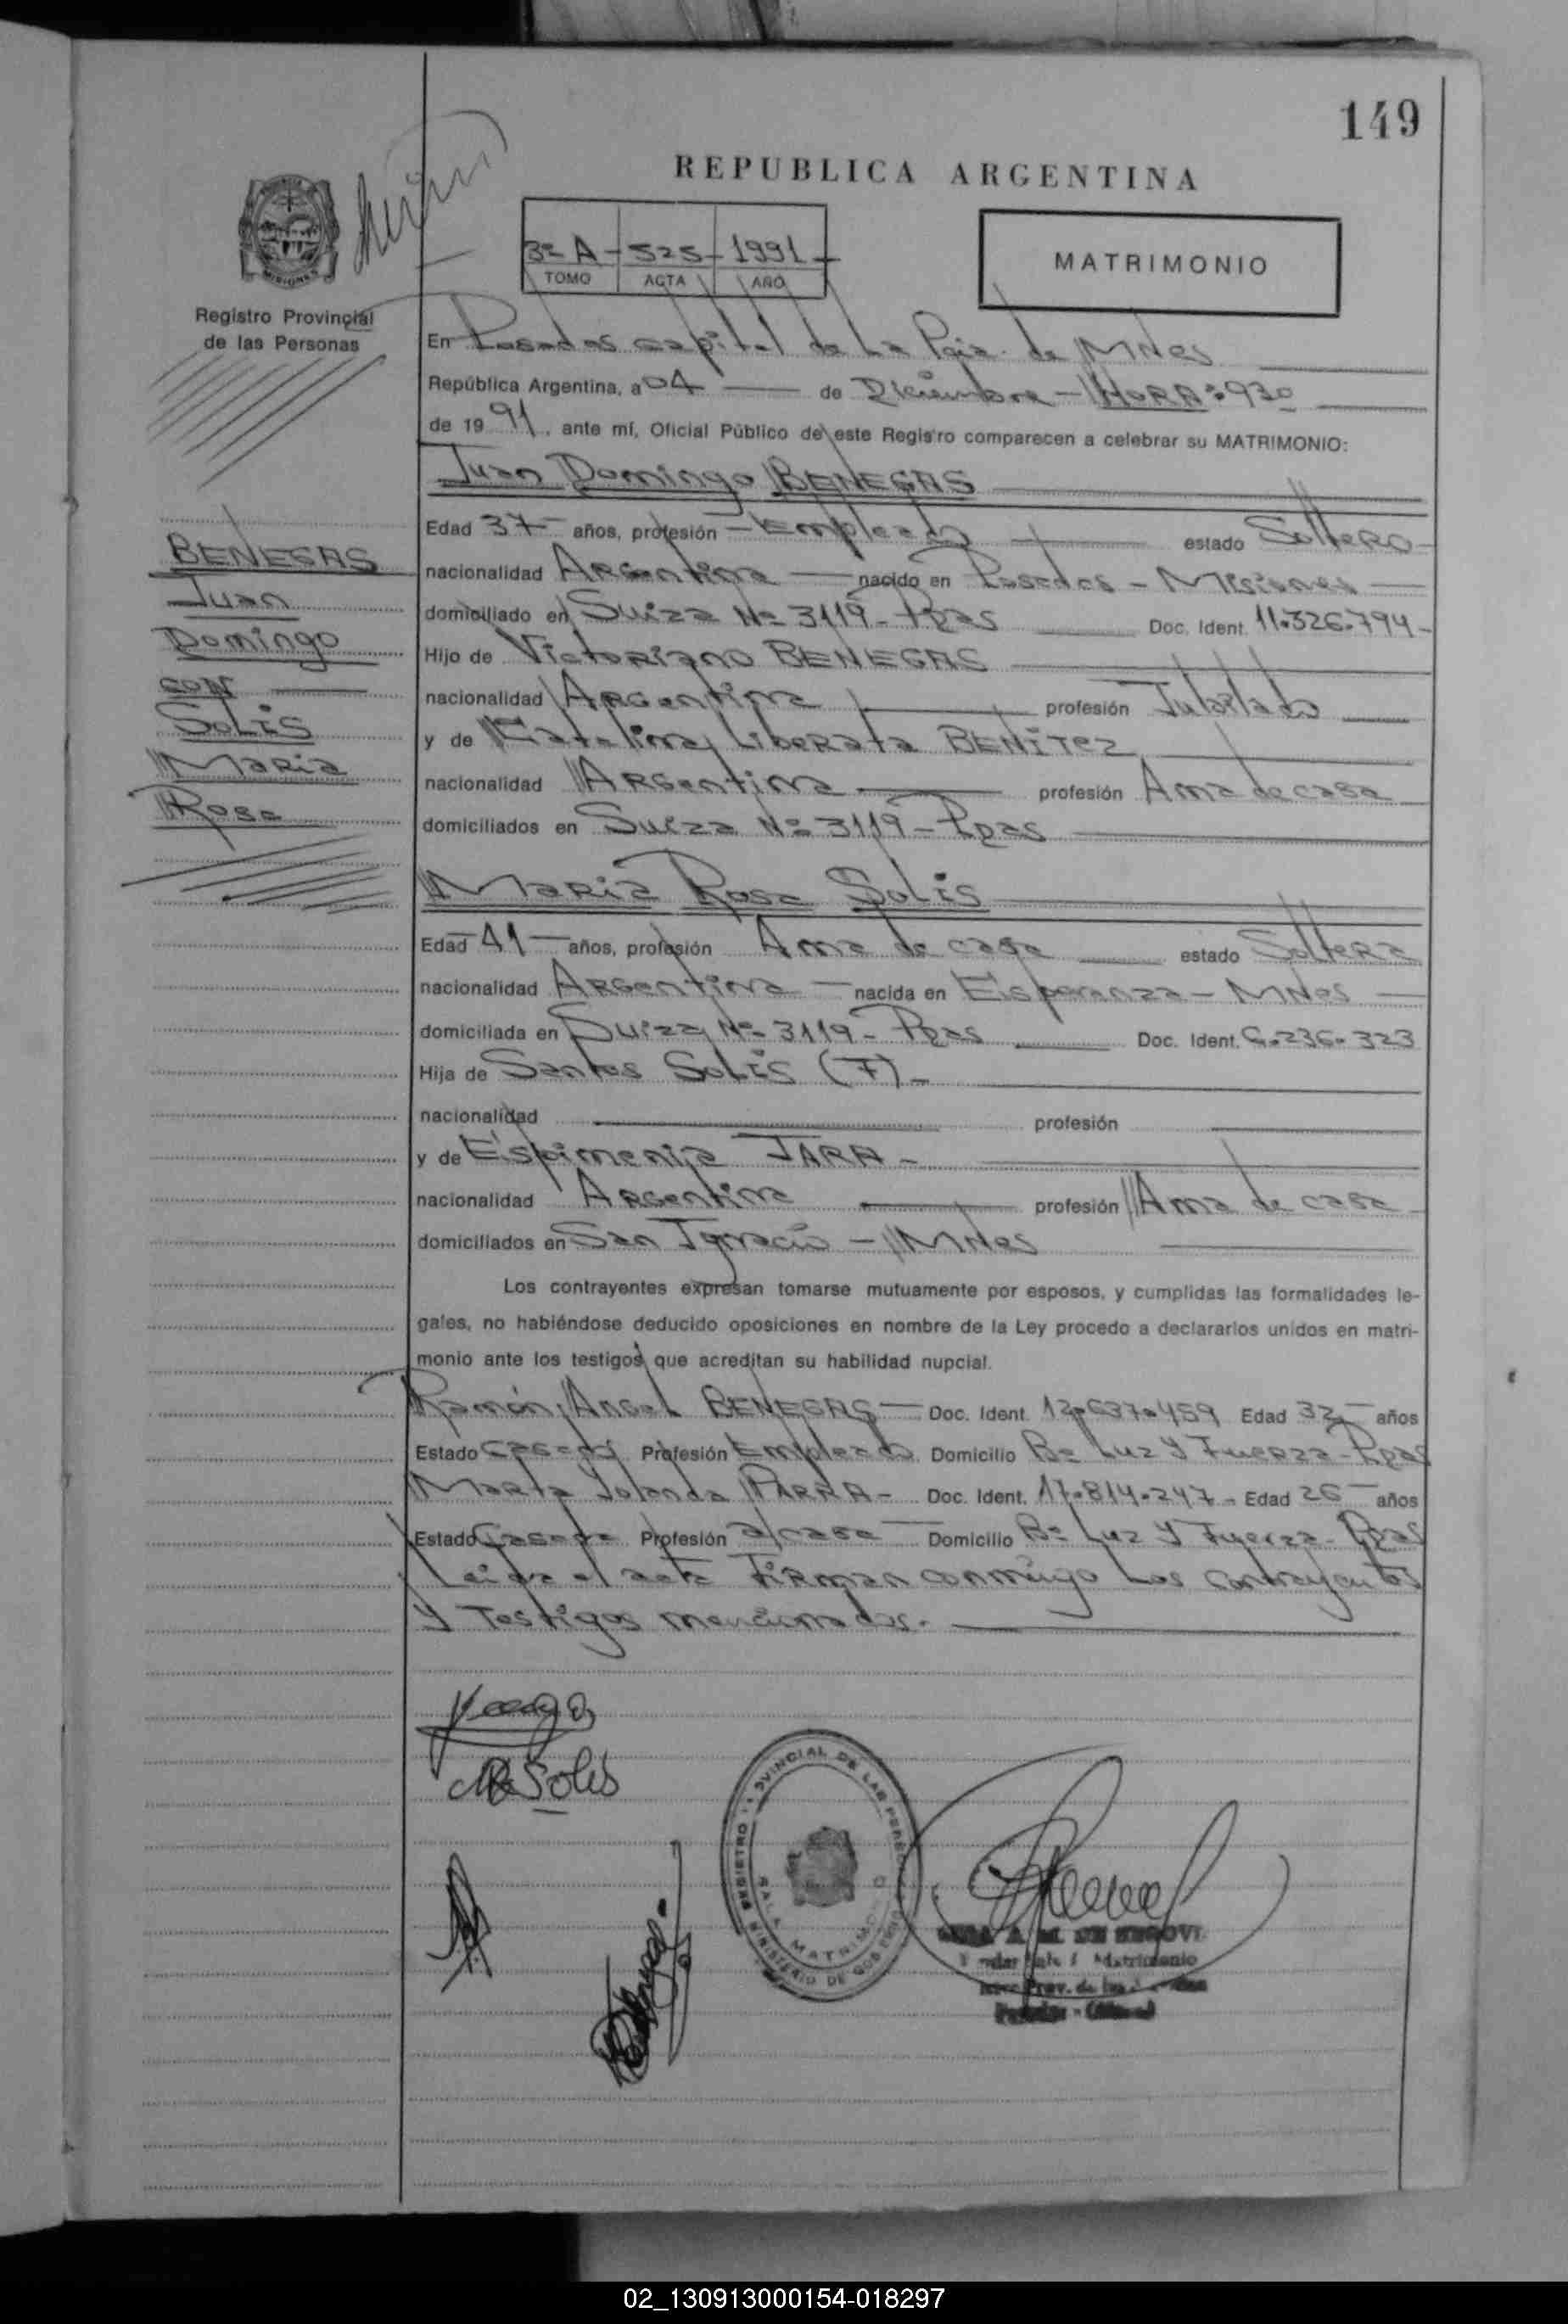 149
REPUBLICA ARGENTINA
MISIONES
Registro Provincial
de las Personas
3º A - 525 - 1991 -
TOMO ACTA AÑO
MATRIMONIO
En Posadas capital de La Pcia. de MNes
República Argentina, a 04 de Diciembre - HORA: 930
de 1991, ante mí, Oficial Público de este Registro comparecen a celebrar su MATRIMONIO:
Juan Domingo BENEGAS
Edad 37 años, profesión Empleado estado Soltero
nacionalidad Argentina nacido en Posadas - Misiones
domiciliado en Suiza Nº 3119 - Pdas Doc. Ident. 11.326.794-
Hijo de Victoriano BENEGAS
nacionalidad Argentina profesión Jubilado
y de Catalina Liberata BENITEZ
nacionalidad Argentina profesión Ama de casa
domiciliados en Suiza Nº 3119 - Pdas
BENEGAS
Juan
Domingo
CON
SOLIS
Maria
Rosa
Maria Rosa Solis
Edad 41 años, profesión Ama de casa estado Soltera
nacionalidad Argentina nacida en Esperanza - MNes
domiciliada en Suiza Nº 3119 - Pdas Doc. Ident. 6.236.323
Hija de Santos Solis (F) -
nacionalidad profesión
y de Espimenia JARA -
nacionalidad Argentina profesión Ama de casa
domiciliados en San Ignacio - MNes
Los contrayentes expresan tomarse mutuamente por esposos, y cumplidas las formalidades le-
gales, no habiéndose deducido oposiciones en nombre de la Ley procedo a declararlos unidos en matri-
monio ante los testigos que acreditan su habilidad nupcial.
Ramón Angel BENEGAS - Doc. Ident. 12.637.459 Edad 32 años
Estado Casado Profesión Empleado Domicilio Bº Luz Y Fuerza - Pdas
Marta Yolanda PARRA - Doc. Ident. 17.814.247 - Edad 26 años
Estado Casada Profesión a/casa Domicilio Bº Luz Y Fuerza - Pdas
Leida el acta Firman conmigo Los contrayentes
Y Testigos mencionados.-
MR Solis
REGISTRO PROVINCIAL DE LAS PERSONAS
SALA MATRIMONIO
MINISTERIO DE GOBIERNO
A. M. DE SEGOVI
Matrimonio
02_130913000154-018297